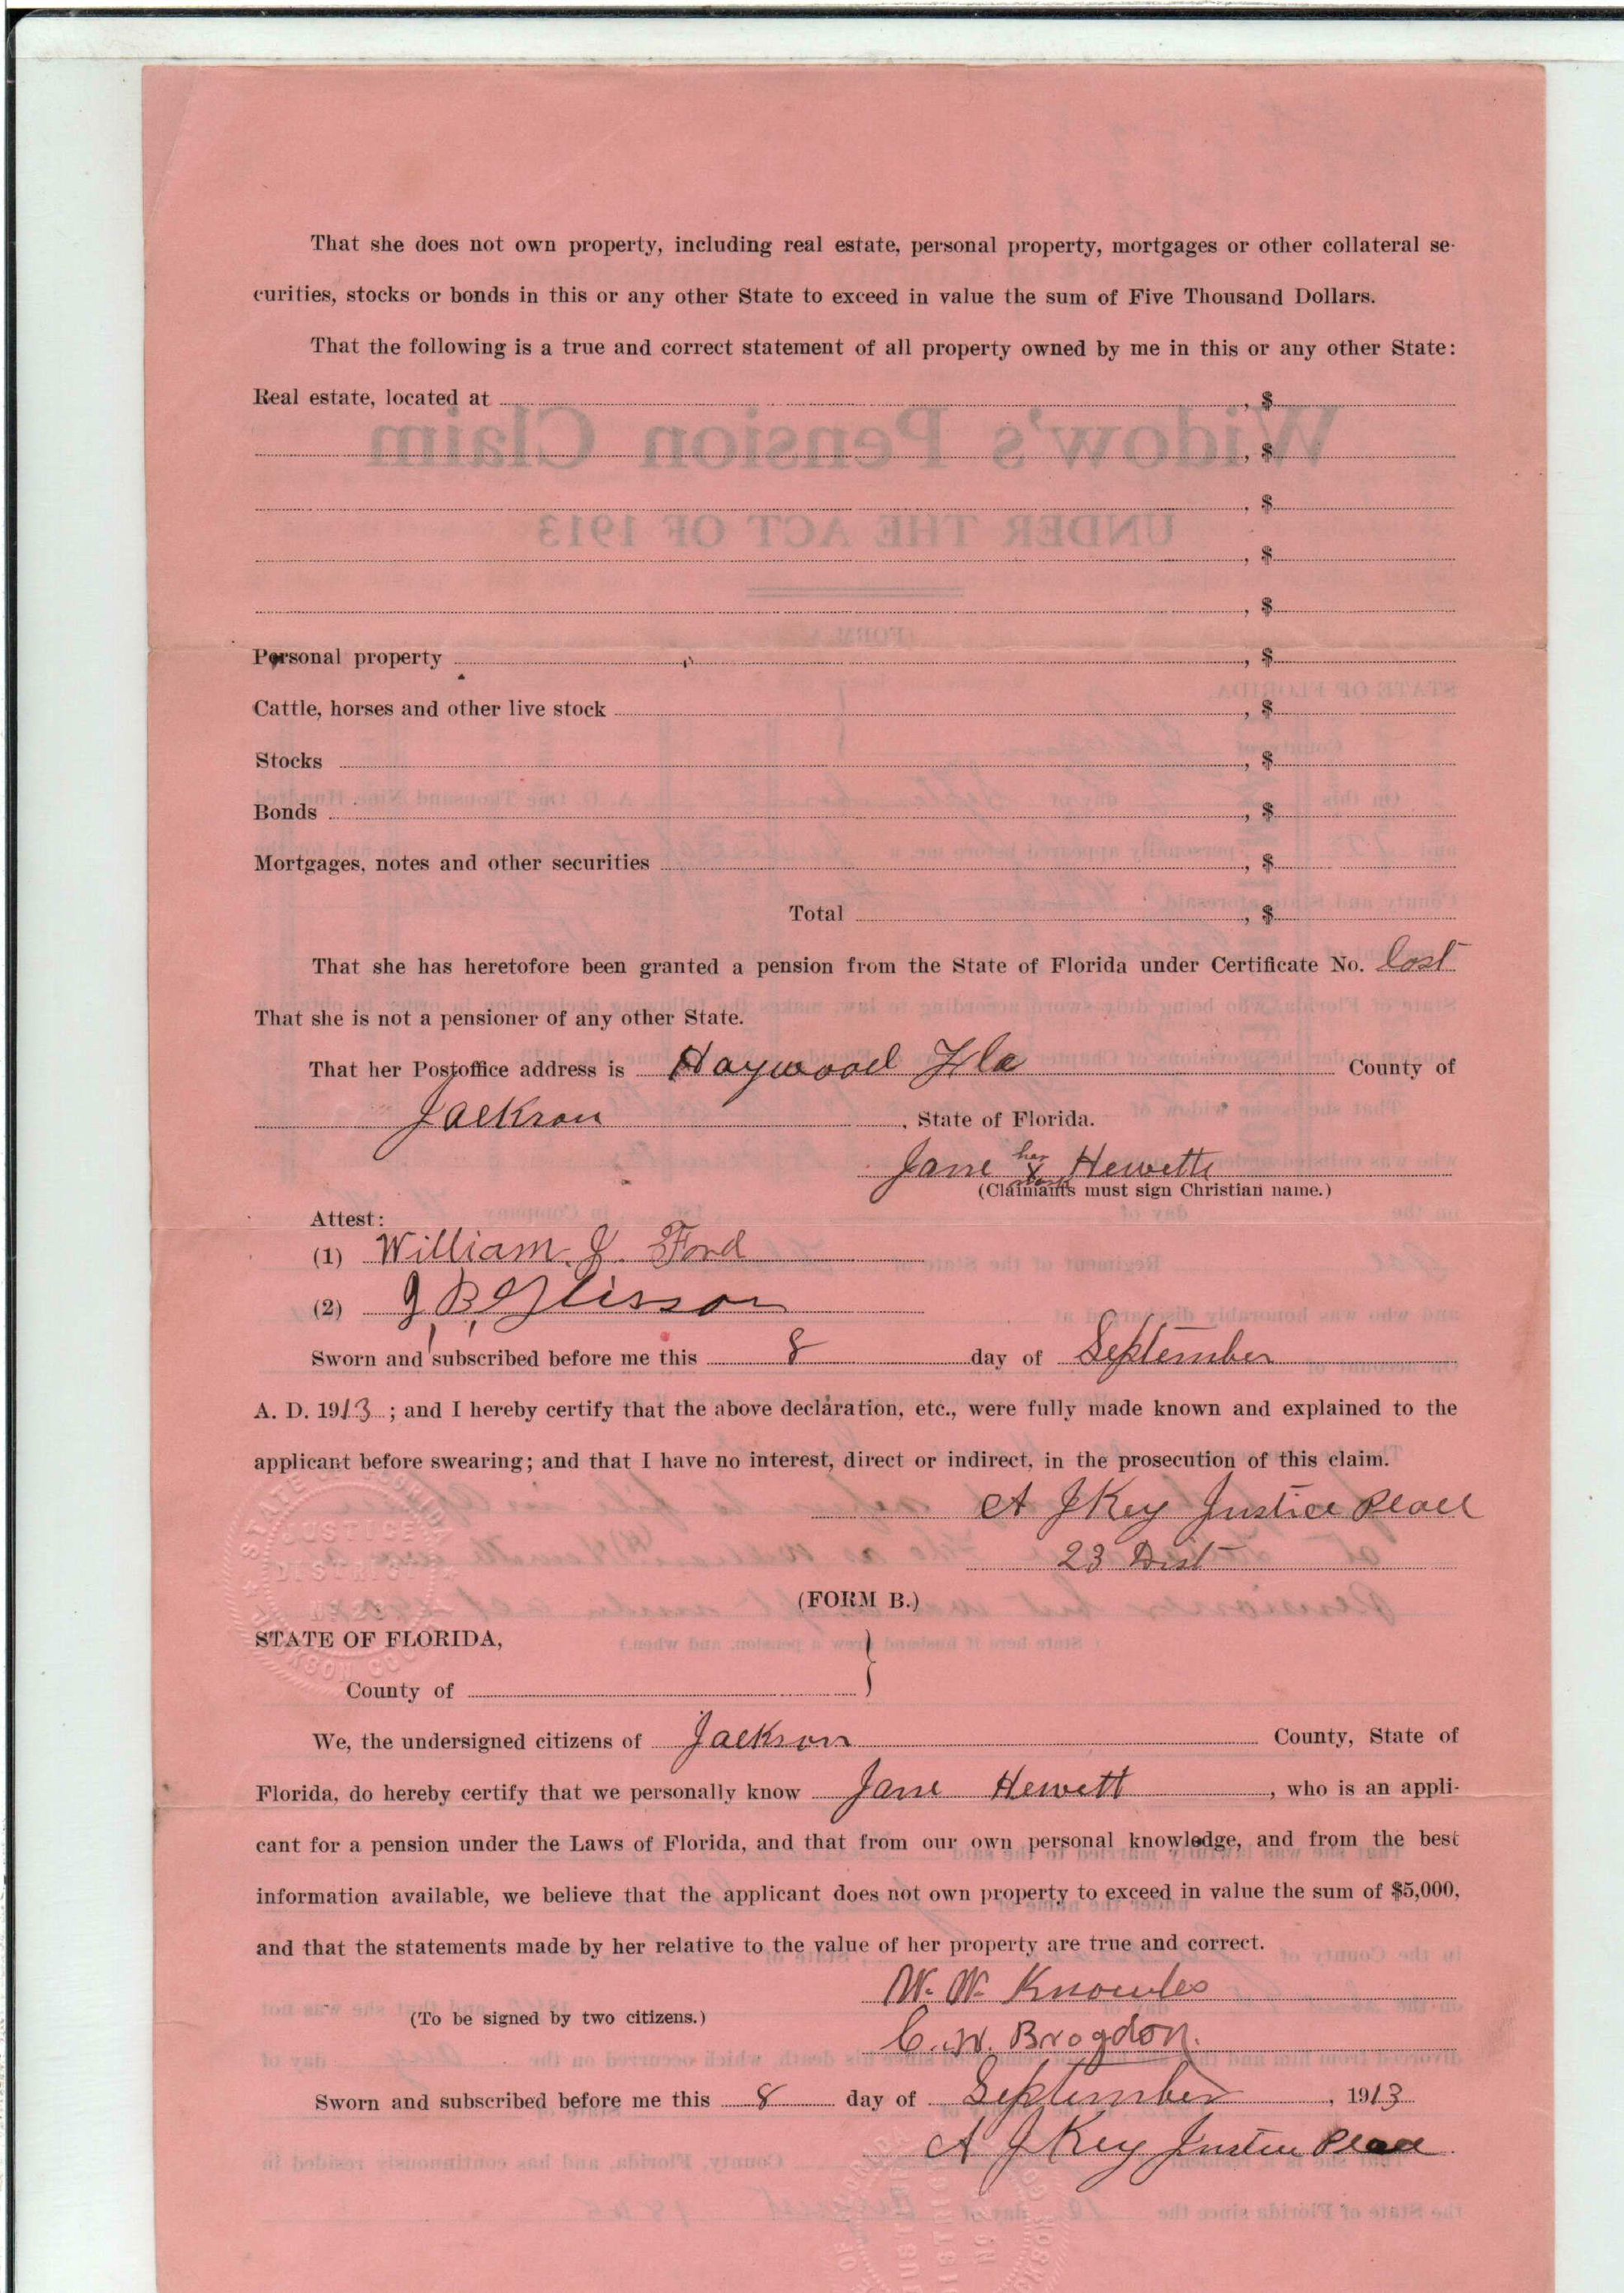 That she does not own property, including real estate, personal property, mortgages or other collateral se-
curities, stocks or bonds in this or any other State to exceed in value the sum of Five Thousand Dollars.
That the following is a true and correct statement of all property owned by me in this or any other State:
Real estate, located at , $
, $
, $
, $
, $
Personal property , $
Cattle, horses and other live stock , $
Stocks , $
Bonds , $
Mortgages, notes and other securities , $
Total , $
That she has heretofore been granted a pension from the State of Florida under Certificate No. Lost
That she is not a pensioner of any other State.
That her Postoffice address is Haywood Fla County of
Jackson , State of Florida.
Jane her x mark Hewett
(Claimants must sign Christian name.)
Attest:
(1) William J. Ford
(2) J B Glisson
Sworn and subscribed before me this 8 day of September
A. D. 1913 ; and I hereby certify that the above declaration, etc., were fully made known and explained to the
applicant before swearing; and that I have no interest, direct or indirect, in the prosecution of this claim.
A J Key Justice Peace
23 Dist
(FORM B.)
STATE OF FLORIDA,
County of
We, the undersigned citizens of Jackson County, State of
Florida, do hereby certify that we personally know Jane Hewett , who is an appli-
cant for a pension under the Laws of Florida, and that from our own personal knowledge, and from the best
information available, we believe that the applicant does not own property to exceed in value the sum of $5,000,
and that the statements made by her relative to the value of her property are true and correct.
W. W. Knowles
(To be signed by two citizens.)
C. W. Brogdon.
Sworn and subscribed before me this 8 day of September , 1913
A J Key Justice Peace